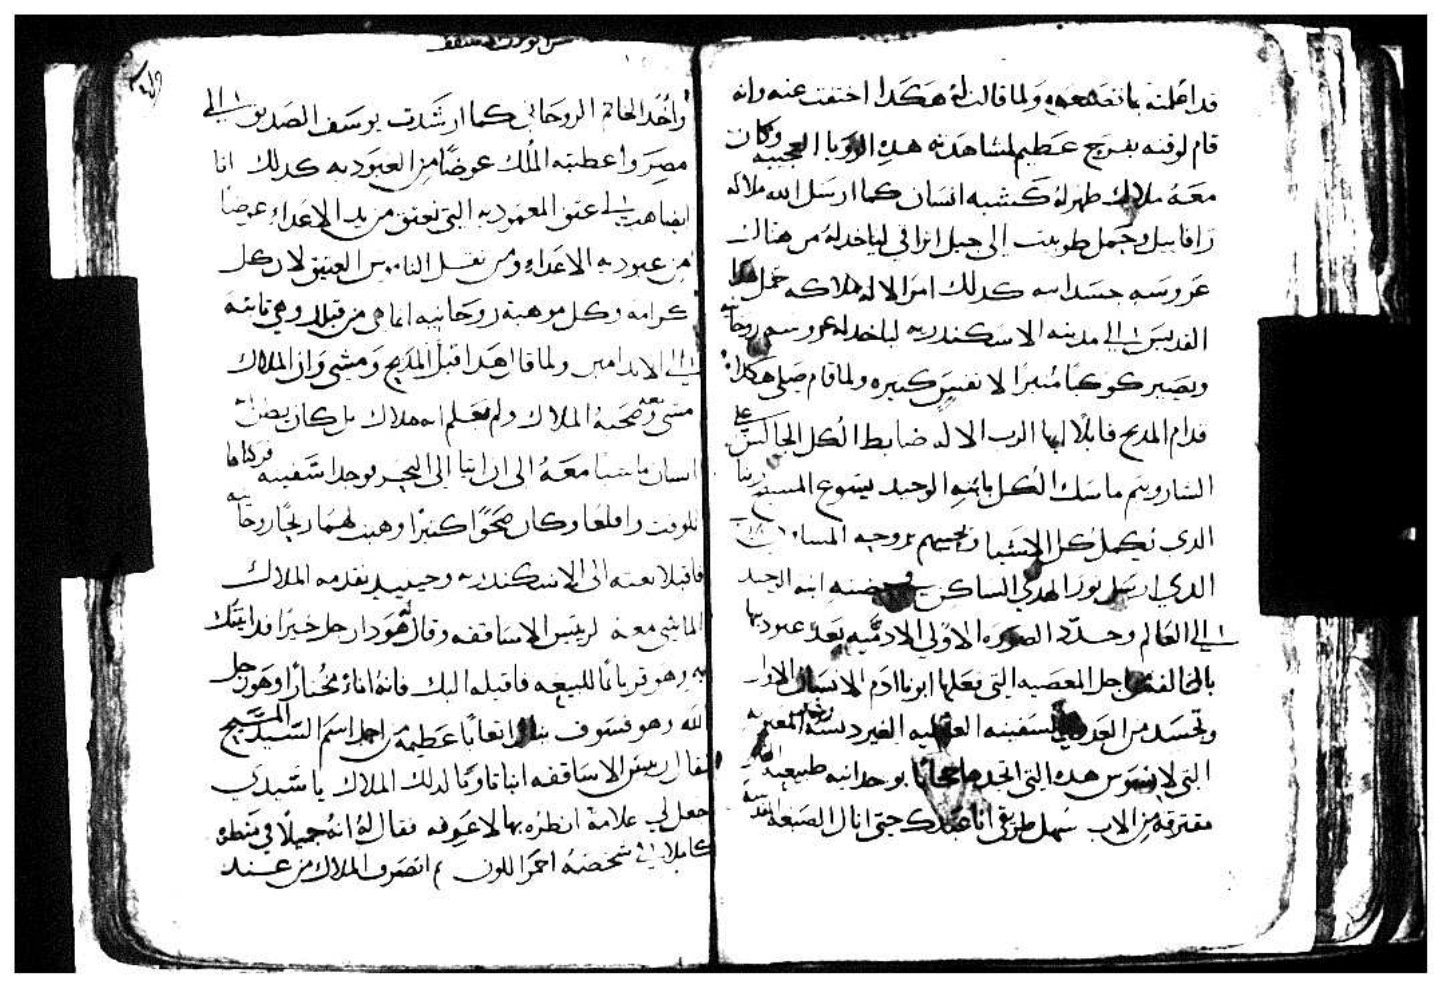 قد اعلمته بما تصنعوه ولما قالت له هكدا اختفت عنه وانه
قام لوقته بفرح عظيم لمشاهدته هده الرويا العجيبه وكان
معه ملاك ظهر له كشبه انسان كما ارسل الله ملاكه
رافاييل وحمل طوبيت الى جبل اراقي لياخد له من هناك
عروسه جسدانيه كدلك امر الاله ملاكه حمل هدا
القديس الى مدينه الاسكندريه لياخد له عروسه روحانيه
ويصير كوكبا منيرا لانفس كثيره ولما قام صلى هكدا
قدام المدبح قايلا ايها الرب الاله ضابط الكل الجالس على
الشاروبيم ماسك الكل بابنه الوحيد يسوع المسيح ربنا
الدي تكمل كل الاشيا وتحييهم بروحه المساوي
الدي ارسل نور الهدى الساكن في حضنه ابنه الوحيد
الى العالم وجدد الصوره الاولى الادميه بعد عبوديتها
بالمخالفه من اجل المعصيه التي فعلها ابونا ادم الانسان الاول
وتجسد من العدرى السفينه العقليه الغير دنسه
التي لا تسوس هده التي اتحد بوحدانيه طبيعيه
مفترقه من الاب سهل طريقي انا عبدك حتى انال الصبغه المقدسه
واخد الخاتم الروحاني كما ارشدت يوسف الصديق الى
مصر واعطيته الملك عوضا من العبوديه كدلك انا
ايضا هب لي عتق المعموديه التي تعتق من يد الاعداء عوضا
من عبوديه الاعداء ومن ثقل الناموس العتيق لان كل
كرامه وكل موهبة روحانيه انما هي من قبلك وهي ثابته
الى الابد امين ولما قال هدا قبل المدبح ومشى وان الملاك
مشى معه صحبة الملاك ولم يعلم انه ملاك بل كان يظن انه
انسان ماشيا معه الى ان اتيا الى البحر فوجدا سفينه فركباها
للوقت واقلعا وكان صحوا كثيرا وهبت لهما ريحا روحانيه
فاقبلا بعته الى الاسكندريه وحينيد تقدمه الملاك
الماشي معه لريس الاساقفه وقال له هودا رجل خيرا قد اتيتك
به وهو قربانا للبيعه فاقبله اليك فانه اناء مختارا وهو رجل
لله وهو فسوف ينال اتعابا عظيمه من اجل اسم السيد المسيح
فقال ريس الاساقفه انبا تاونا لدلك الملاك يا سيدي
اجعل لي علامة انظره بها لاعرفه فقال له انه جميلا في منظره
كاملا في شخصه احمر اللون ثم انصرف الملاك من عند